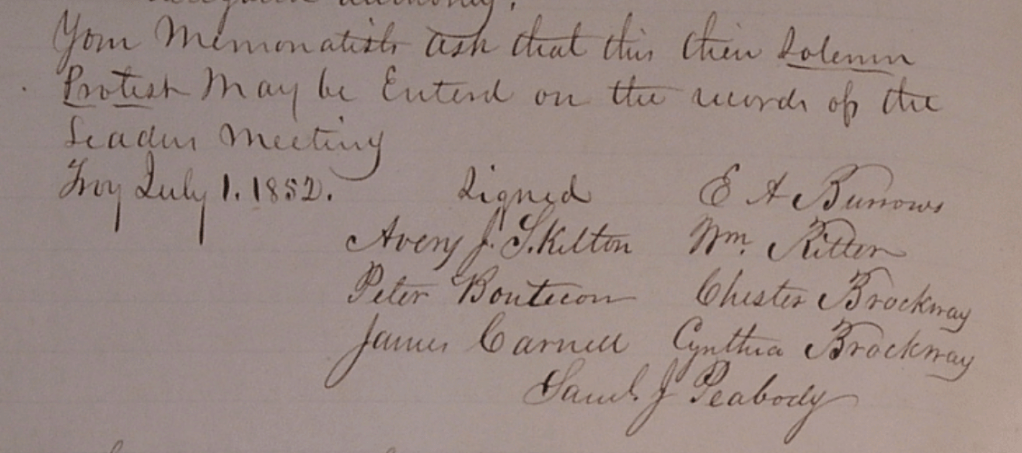 Your Memorialists ask that this their Solemn
Protest May be Enterd on the records of the
Leaders Meeting
Troy July 1. 1852. Signed E A Burrows
Avery J. Skilton Wm. Ritter
Peter Boutecou Chester Brockway
James Carnell Cynthia Brockway
Saml J Peabody